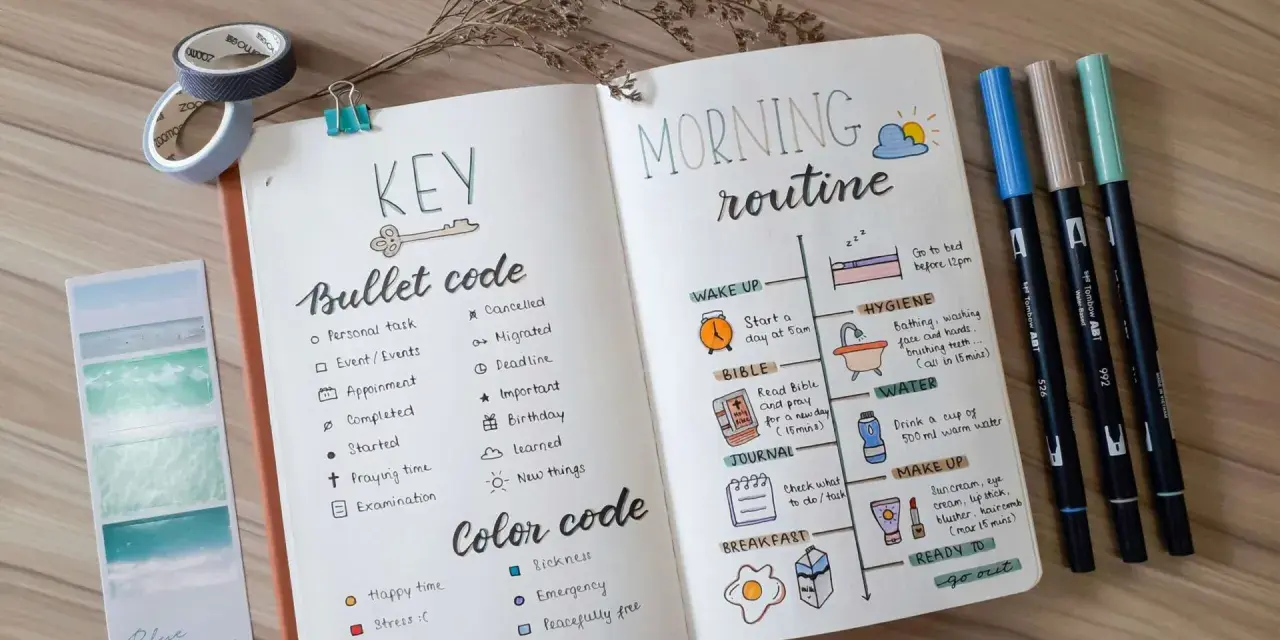 KEY
Bullet code
Personal task
Event/Events
Appoinment
Completed
Started
Praying time
Examination
Cancelled
Migrated
Deadline
Important
Birthday
learned
New things
Color code
Happy time
Stress :(
Sickness
Emergency
Peacefully free
MORNING
routine
zzz
Go to bed
before 12pm
WAKE UP
Start a
day at 5am
HYGIENE
Bathing, washing
face and hands,
brushing teeth...
(all in 15mins)
BIBLE
Holy
Bible
Read Bible
and pray
for a new day
(15mins)
WATER
Drink a cup of
500ml warm water
JOURNAL
Check what
to do/task
MAKE UP
Suncream, eye
cream, lipstick,
blusher, haircomb
(max 15mins)
BREAKFAST
READY TO
go out
Tombow ABT
526
Tombow ABT
992
Blue